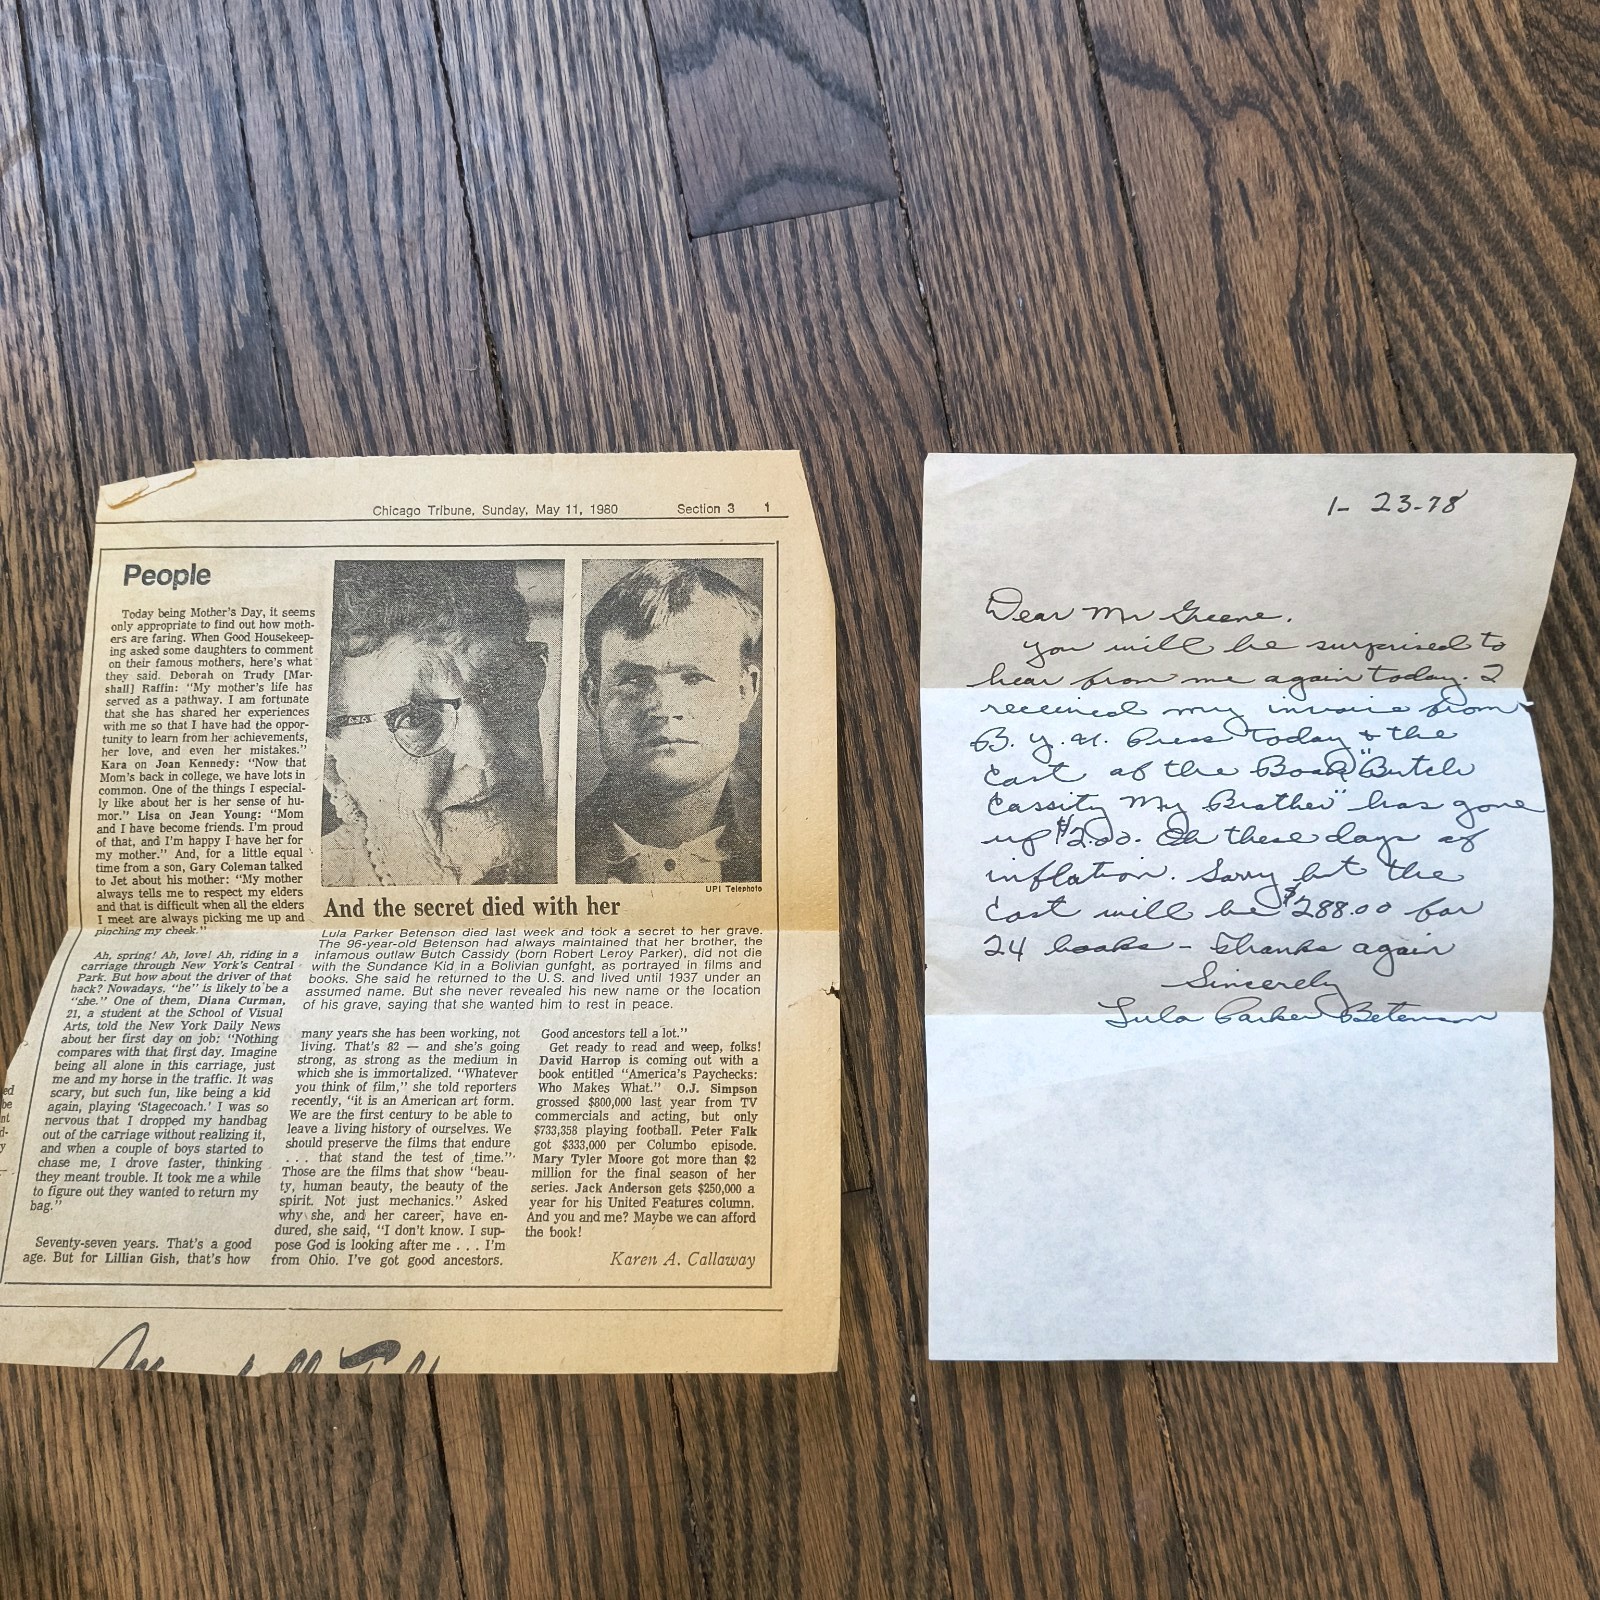 Chicago Tribune, Sunday, May 11, 1980 Section 3 1
People
Today being Mother's Day, it seems
only appropriate to find out how moth-
ers are faring. When Good Housekeep-
ing asked some daughters to comment
on their famous mothers, here's what
they said. Deborah on Trudy [Mar-
shall] Raffin: "My mother's life has
served as a pathway. I am fortunate
that she has shared her experiences
with me so that I have had the oppor-
tunity to learn from her achievements,
her love, and even her mistakes."
Kara on Joan Kennedy: "Now that
Mom's back in college, we have lots in
common. One of the things I especial-
ly like about her is her sense of hu-
mor." Lisa on Jean Young: "Mom
and I have become friends. I'm proud
of that, and I'm happy I have her for
my mother." And, for a little equal
time from a son, Gary Coleman talked
to Jet about his mother: "My mother
always tells me to respect my elders
and that is difficult when all the elders
I meet are always picking me up and
pinching my cheek."
Ah, spring! Ah, love! Ah, riding in a
carriage through New York's Central
Park. But how about the driver of that
hack? Nowadays, "he" is likely to be a
"she." One of them, Diana Curman,
21, a student at the School of Visual
Arts, told the New York Daily News
about her first day on job: "Nothing
compares with that first day. Imagine
being all alone in this carriage, just
me and my horse in the traffic. It was
scary, but such fun, like being a kid
again, playing 'Stagecoach.' I was so
nervous that I dropped my handbag
out of the carriage without realizing it,
and when a couple of boys started to
chase me, I drove faster, thinking
they meant trouble. It took me a while
to figure out they wanted to return my
bag."
Seventy-seven years. That's a good
age. But for Lillian Gish, that's how
UPI Telephoto
And the secret died with her
Lula Parker Betenson died last week and took a secret to her grave.
The 96-year-old Betenson had always maintained that her brother, the
infamous outlaw Butch Cassidy (born Robert Leroy Parker), did not die
with the Sundance Kid in a Bolivian gunfght, as portrayed in films and
books. She said he returned to the U.S. and lived until 1937 under an
assumed name. But she never revealed his new name or the location
of his grave, saying that she wanted him to rest in peace.
many years she has been working, not
living. That's 82 — and she's going
strong, as strong as the medium in
which she is immortalized. "Whatever
you think of film," she told reporters
recently, "it is an American art form.
We are the first century to be able to
leave a living history of ourselves. We
should preserve the films that endure
. . . that stand the test of time."
Those are the films that show "beau-
ty, human beauty, the beauty of the
spirit. Not just mechanics." Asked
why she, and her career, have en-
dured, she said, "I don't know. I sup-
pose God is looking after me . . . I'm
from Ohio. I've got good ancestors.
Good ancestors tell a lot."
Get ready to read and weep, folks!
David Harrop is coming out with a
book entitled "America's Paychecks:
Who Makes What." O.J. Simpson
grossed $800,000 last year from TV
commercials and acting, but only
$733,358 playing football. Peter Falk
got $333,000 per Columbo episode.
Mary Tyler Moore got more than $2
million for the final season of her
series. Jack Anderson gets $250,000 a
year for his United Features column.
And you and me? Maybe we can afford
the book!
Karen A. Callaway
1-23-78
Dear Mr Greene,
you will be surprised to
hear from me again today. I
received my invoice from
B.Y.U. Press today & the
cost of the Book "Butch
Cassity My Brother" has gone
up $2.00. Oh these days of
inflation. Sorry but the
cost will be $288.00 for
24 books - Thanks again
Sincerely
Lula Parker Betenson